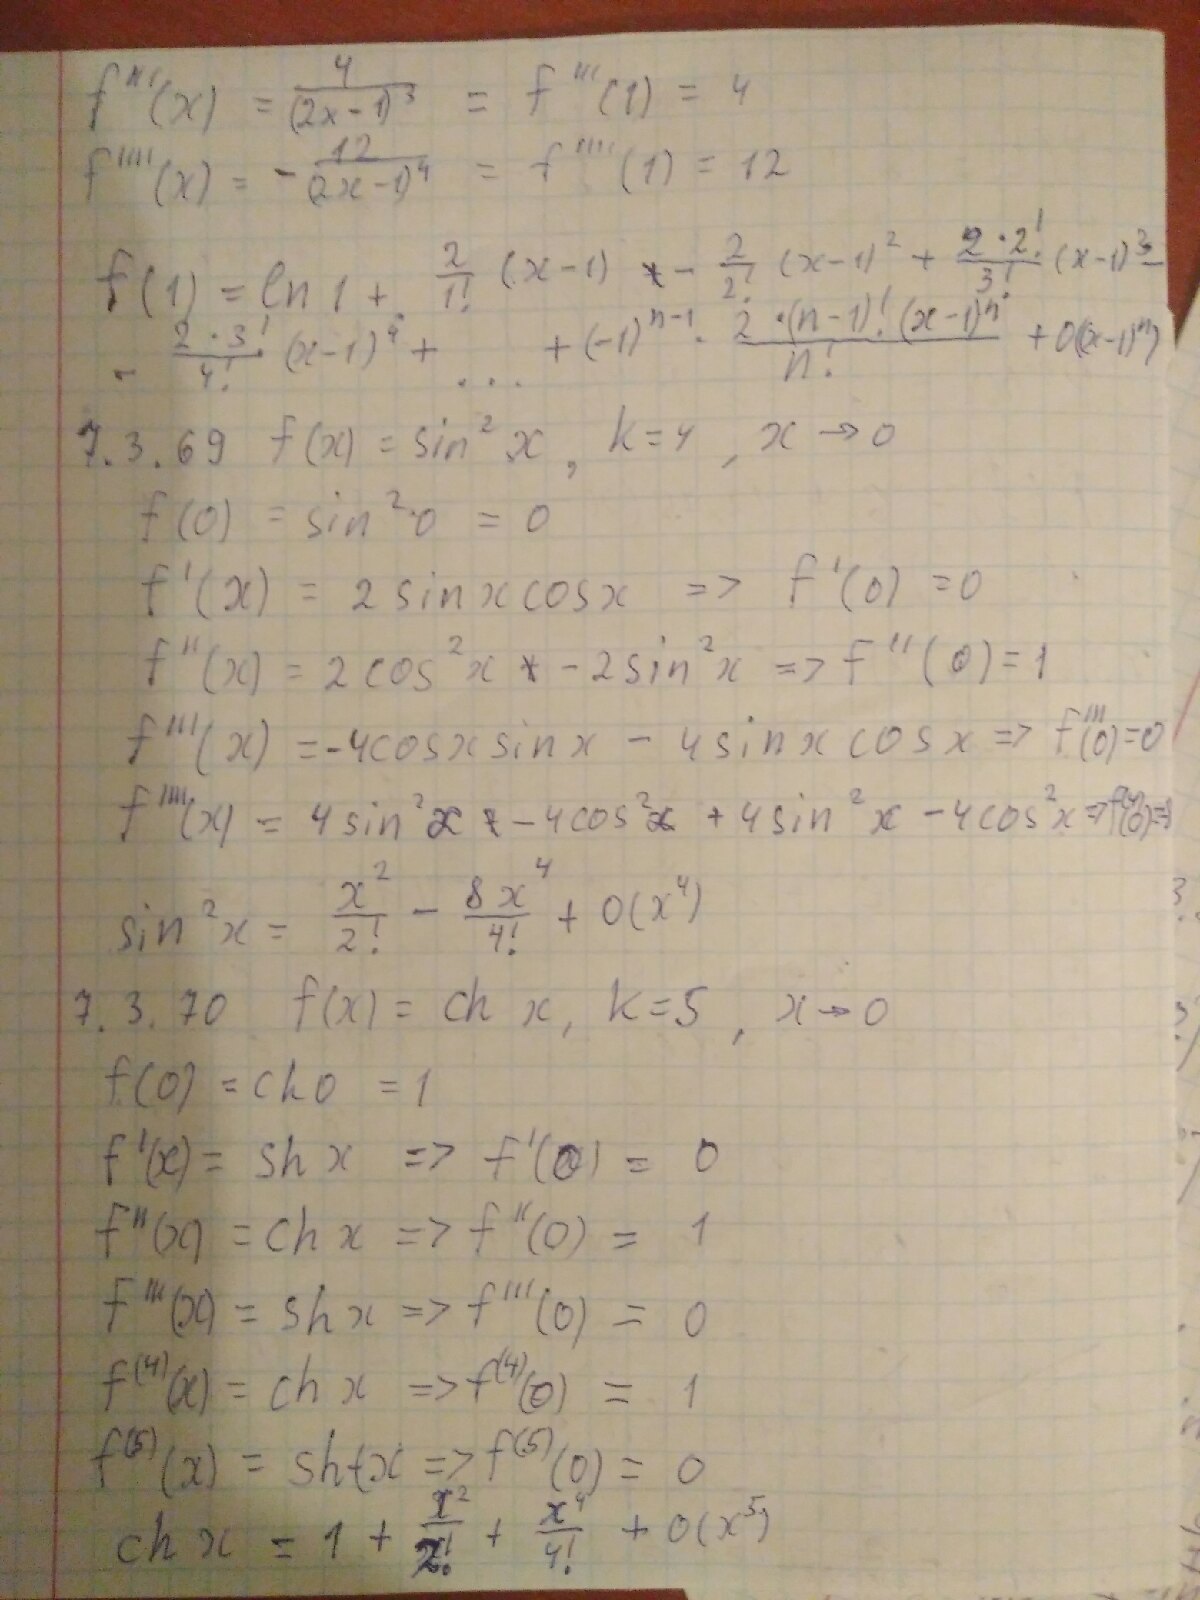 f'''(x) = 4/(2x-1)^3 = f'''(1) = 4
f''''(x) = -12/(2x-1)^4 = f''''(1) = 12
f(1) = ln 1 + 2/1! (x-1) - 2/2! (x-1)^2 + 2·2!/3! (x-1)^3 -
- 2·3!/4! (x-1)^4 + ... + (-1)^{n-1} · 2·(n-1)!(x-1)^n/n! + 0((x-1)^n)
7.3.69 f(x) = sin^2 x, k=4, x→0
f(0) = sin^2 0 = 0
f'(x) = 2 sin x cos x => f'(0) = 0
f''(x) = 2cos^2 x - 2sin^2 x => f''(0) = 1
f'''(x) = -4cosx sinx - 4 sin x cos x => f'''(0) = 0
f''''(x) = 4sin^2 x - 4cos^2 x + 4sin^2 x - 4cos^2 x =>
sin^2 x = x^2/2! - 8x^4/4! + 0(x^4)
7.3.70 f(x) = ch x, k=5, x→0
f(0) = ch0 = 1
f'(x) = sh x => f'(0) = 0
f''(x) = ch x => f''(0) = 1
f'''(x) = sh x => f'''(0) = 0
f^(4)(x) = ch x => f^(4)(0) = 1
f^(5)(x) = sh x => f^(5)(0) = 0
ch x = 1 + x^2/2! + x^4/4! + 0(x^5)